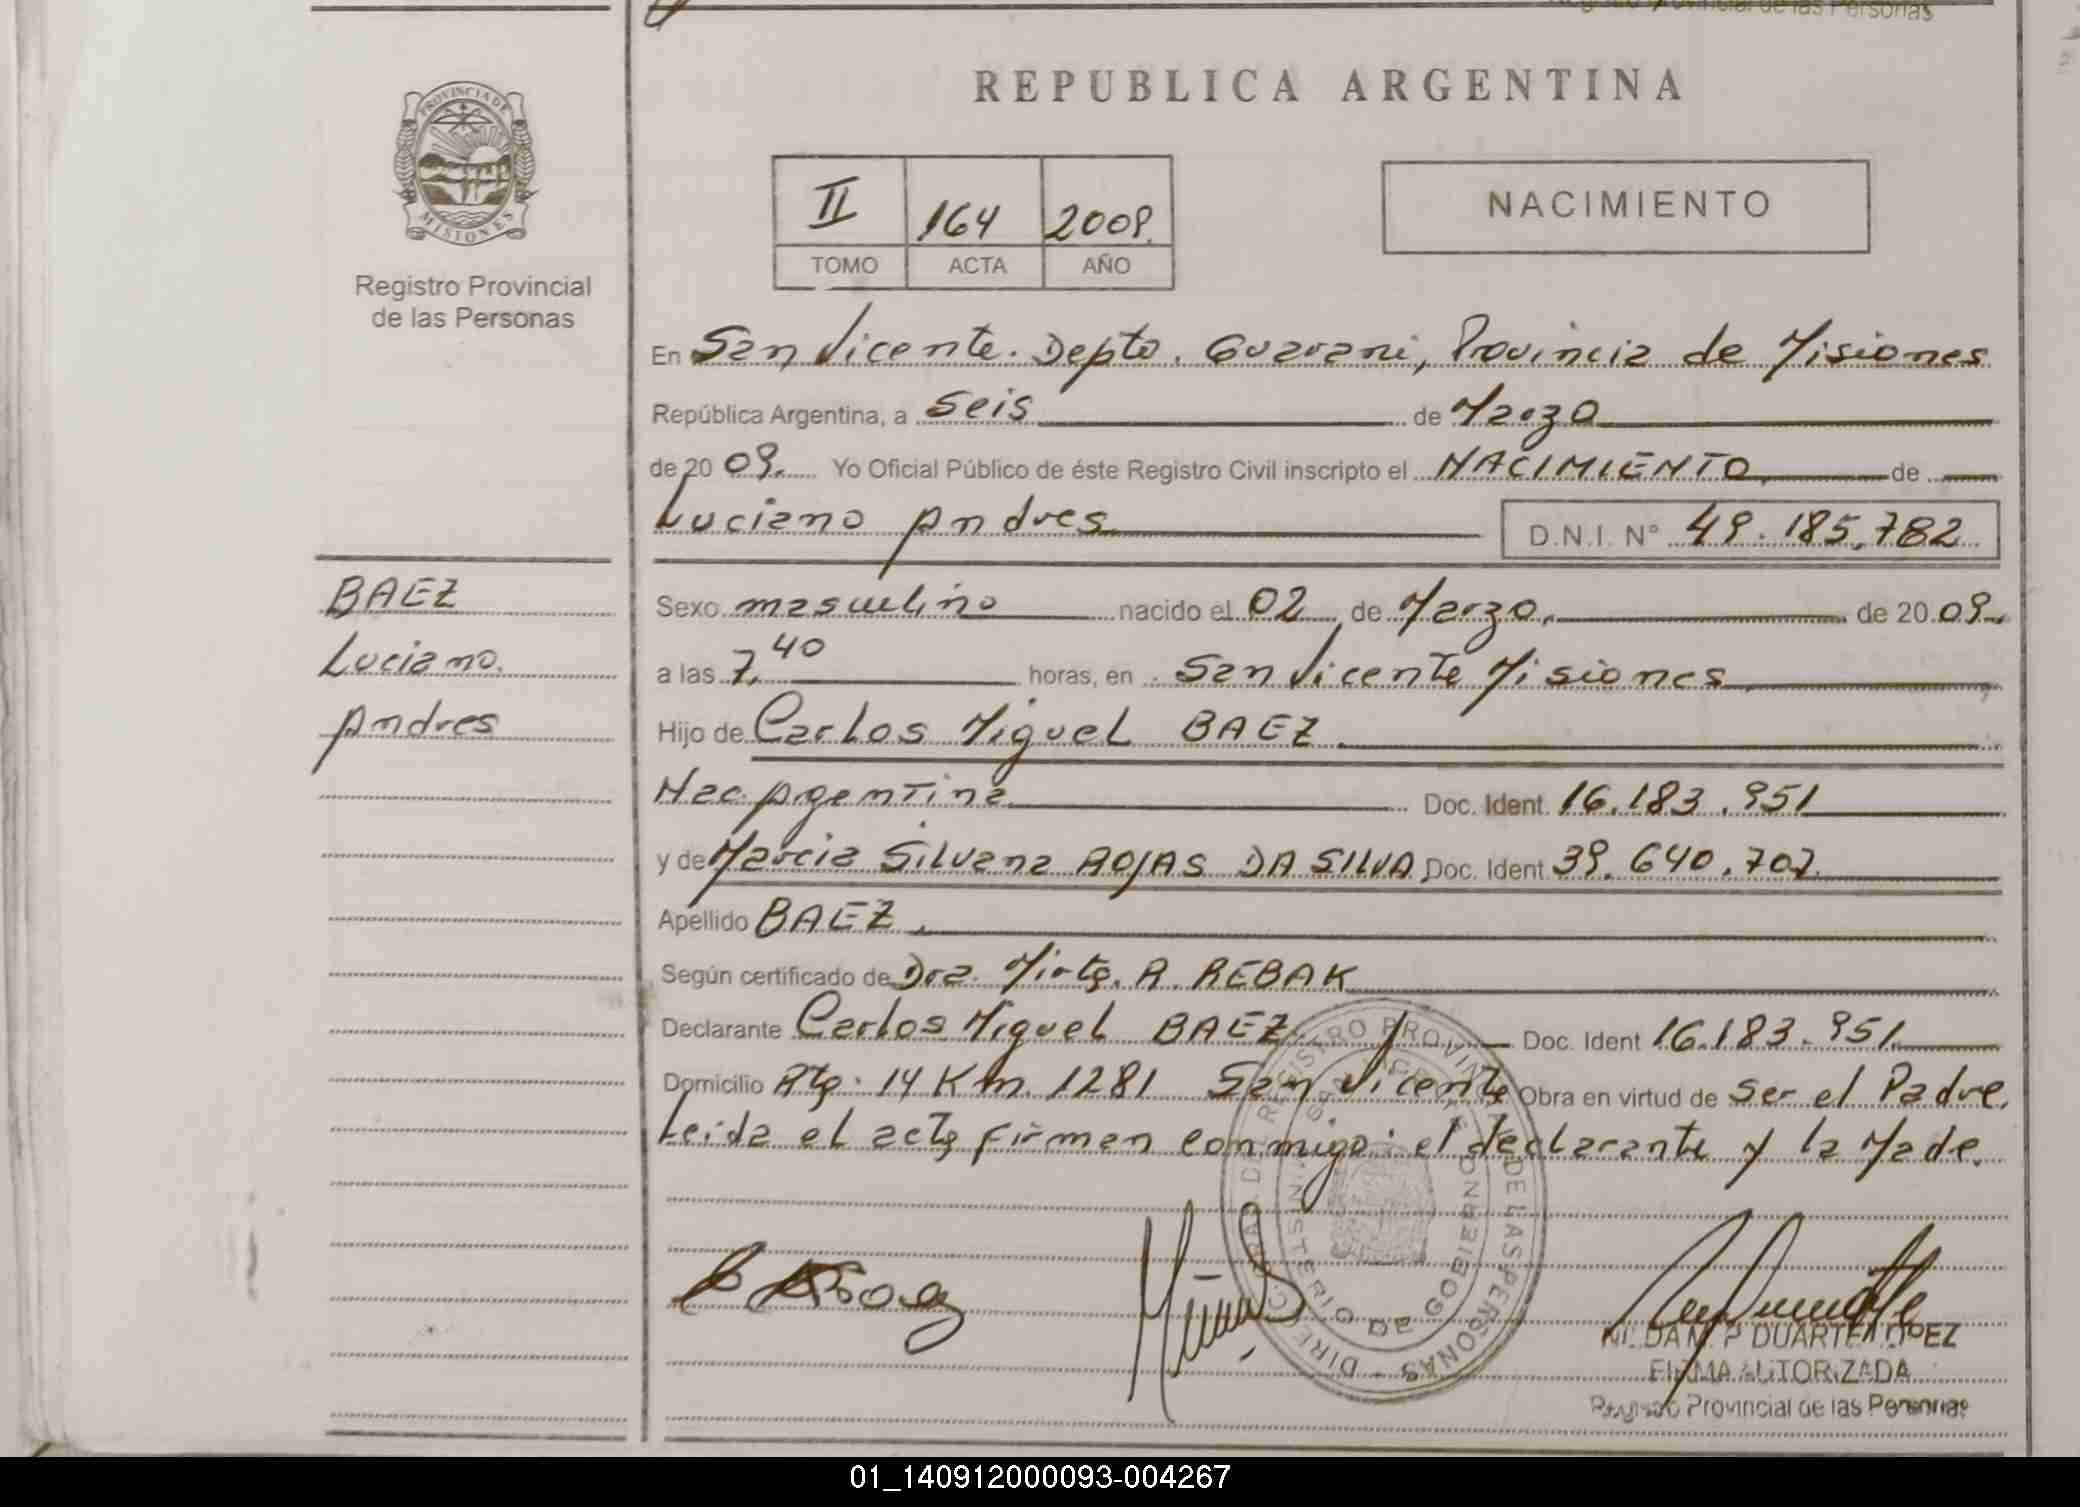 Registro Provincial de las Personas
PROVINCIA DE
MISIONES
Registro Provincial
de las Personas
REPUBLICA ARGENTINA
II 164 2009.
TOMO ACTA AÑO
NACIMIENTO
En San Vicente. Depto. Guarani, Provincia de Misiones
República Argentina, a Seis de Marzo
de 20 09. Yo Oficial Público de éste Registro Civil inscripto el NACIMIENTO de
Luciano Andres
D.N.I. Nº 49.185.782
BAEZ
Luciano.
Andres
Sexo masculino nacido el 02 de Marzo. de 20 09.
a las 7.40 horas, en San Vicente Misiones
Hijo de Carlos Miguel BAEZ.
Nac. Argentina Doc. Ident. 16.183.951
y de Marcia Silvana ROJAS DA SILVA Doc. Ident 39.640.707.
Apellido BAEZ.
Según certificado de Dra. Mirta. R. REBAK
Declarante Carlos Miguel BAEZ Doc. Ident 16.183.951.
Domicilio Rta. 14 Km. 1281 San Vicente Obra en virtud de Ser el Padre.
Leida el acta firman conmigo: el declarante y la Made.
DIRECCION GRAL. DE REGISTRO PROVINCIAL DE LAS PERSONAS
MINISTERIO DE GOBIERNO
NILDA M. P DUARTE LOPEZ
FIRMA AUTORIZADA
Registro Provincial de las Personas
01_140912000093-004267